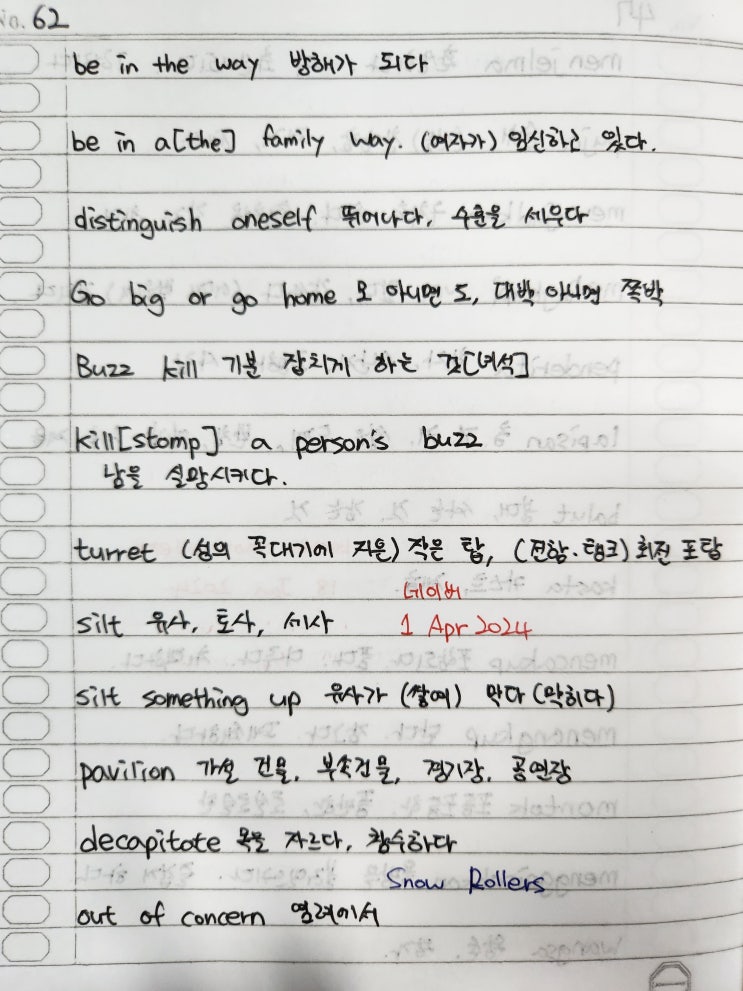 No. 62
be in the way 방해가 되다
be in a[the] family way. (여자가) 임신하고 있다.
distinguish oneself 뛰어나다, 수훈을 세우다
Go big or go home 모 아니면 도, 대박 아니면 쪽박
Buzz kill 기분 잡치게 하는 것[녀석]
kill[stomp] a person's buzz
남을 실망시키다.
turret (성의 꼭대기에 지은) 작은 탑, (전함·탱크) 회전 포탑
네이버
silt 유사, 토사, 세사 1 Apr 2024
silt something up 유사가 (쌓여) 막다 (막히다)
pavilion 가설 건물, 부속건물, 경기장, 공연장
decapitate 목을 자르다, 참수하다
Snow Rollers
out of concern 염려에서